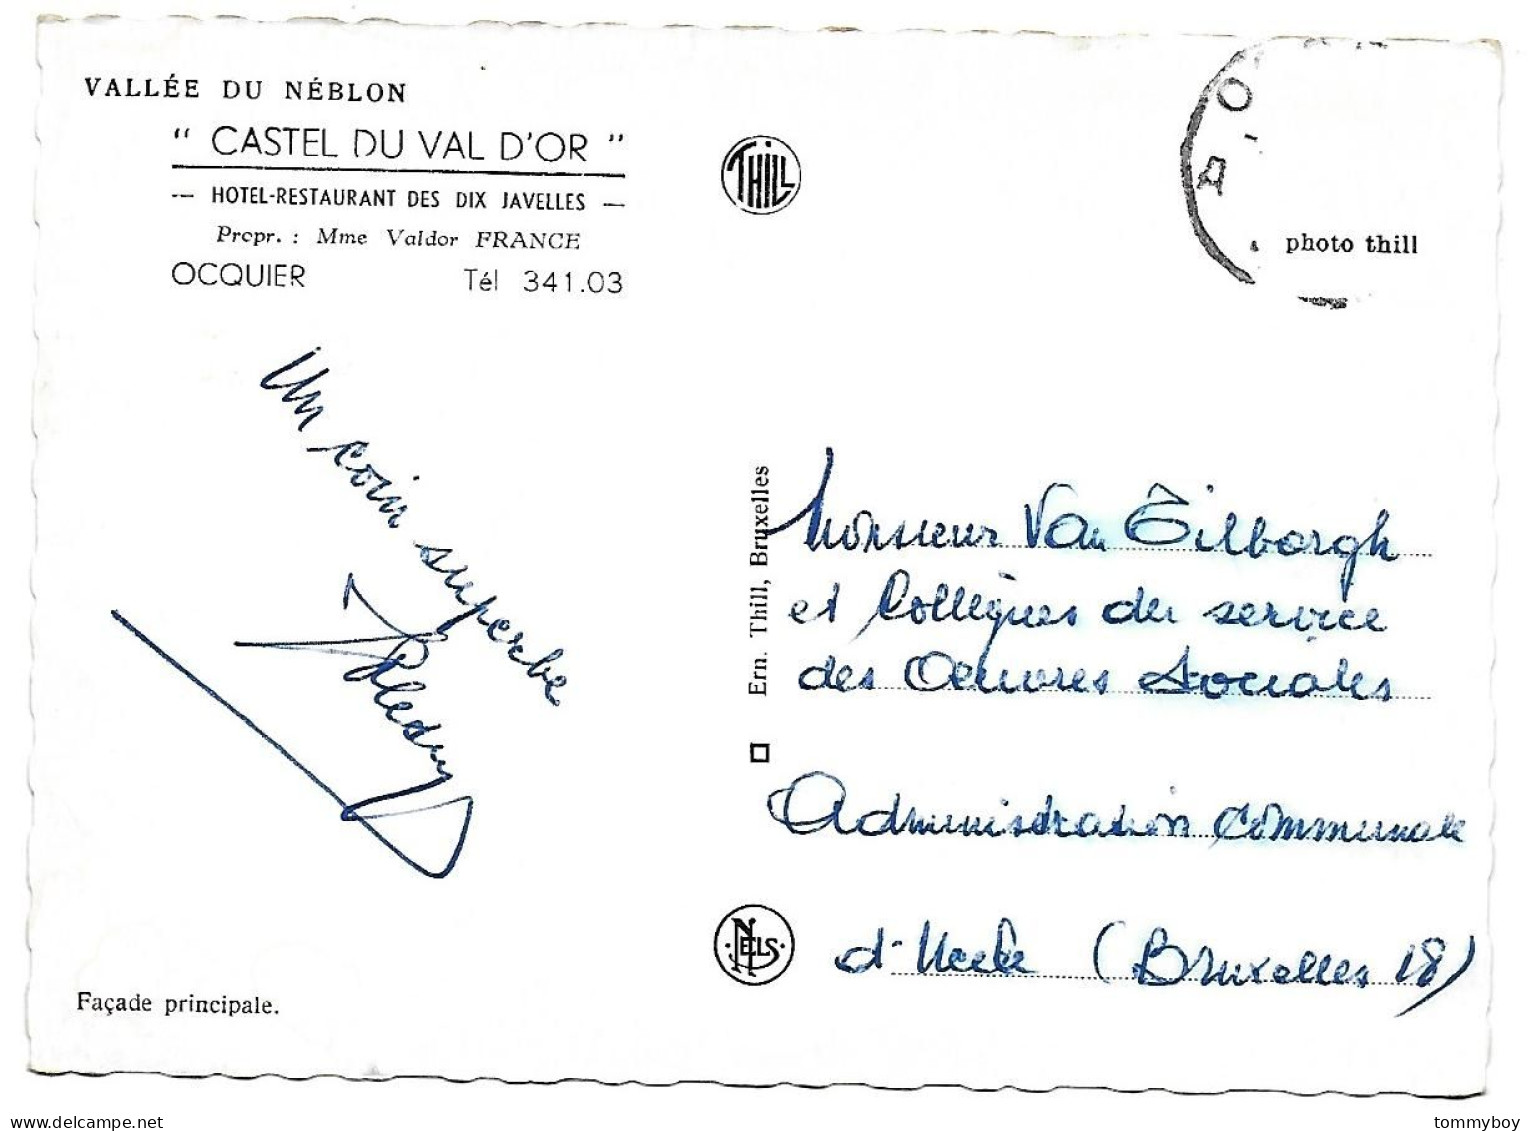 VALLÉE DU NÉBLON
" CASTEL DU VAL D'OR "
— HOTEL-RESTAURANT DES DIX JAVELLES —
Propr. : Mme Valdor FRANCE
OCQUIER Tél 341.03
THILL
A O
photo thill
Un coin superbe
Ern. Thill, Bruxelles
Monsieur Van Tilborgh
et Collègues du service
des Oeuvres Sociales
Administration Communale
d'Uccle (Bruxelles 18)
NELS
Façade principale.
www.delcampe.net
tommyboy